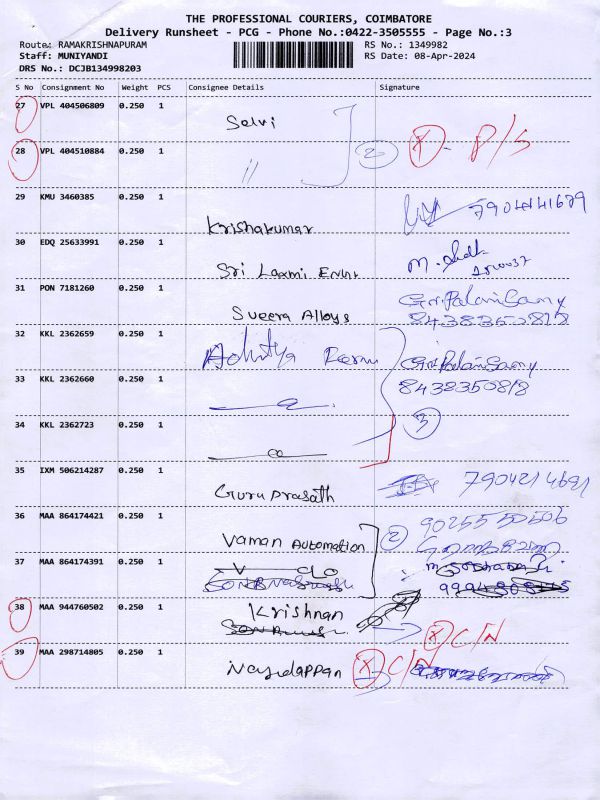 THE PROFESSIONAL COURIERS, COIMBATORE
Delivery Runsheet - PCG - Phone No.:0422-3505555 - Page No.:3
Route: RAMAKRISHNAPURAM RS No.: 1349982
Staff: MUNIYANDI RS Date: 08-Apr-2024
DRS No.: DCJB134998203
S No Consignment No Weight PCS Consignee Details Signature
27 VPL 404506809 0.250 1 Selvi
28 VPL 404510884 0.250 1 " 2 X - P/S
29 KMU 3460385 0.250 1 Krishakumar 7904141679
30 EDQ 25633991 0.250 1 Sri Laxmi
31 PON 7181260 0.250 1 Sveera Alloys
32 KKL 2362659 0.250 1
33 KKL 2362660 0.250 1
34 KKL 2362723 0.250 1 3
35 IXM 506214287 0.250 1 Guru prasath
36 MAA 864174421 0.250 1 Vaman Automation 2
37 MAA 864174391 0.250 1
38 MAA 944760502 0.250 1 Krishnan X C/N
39 MAA 298714805 0.250 1 X C/N